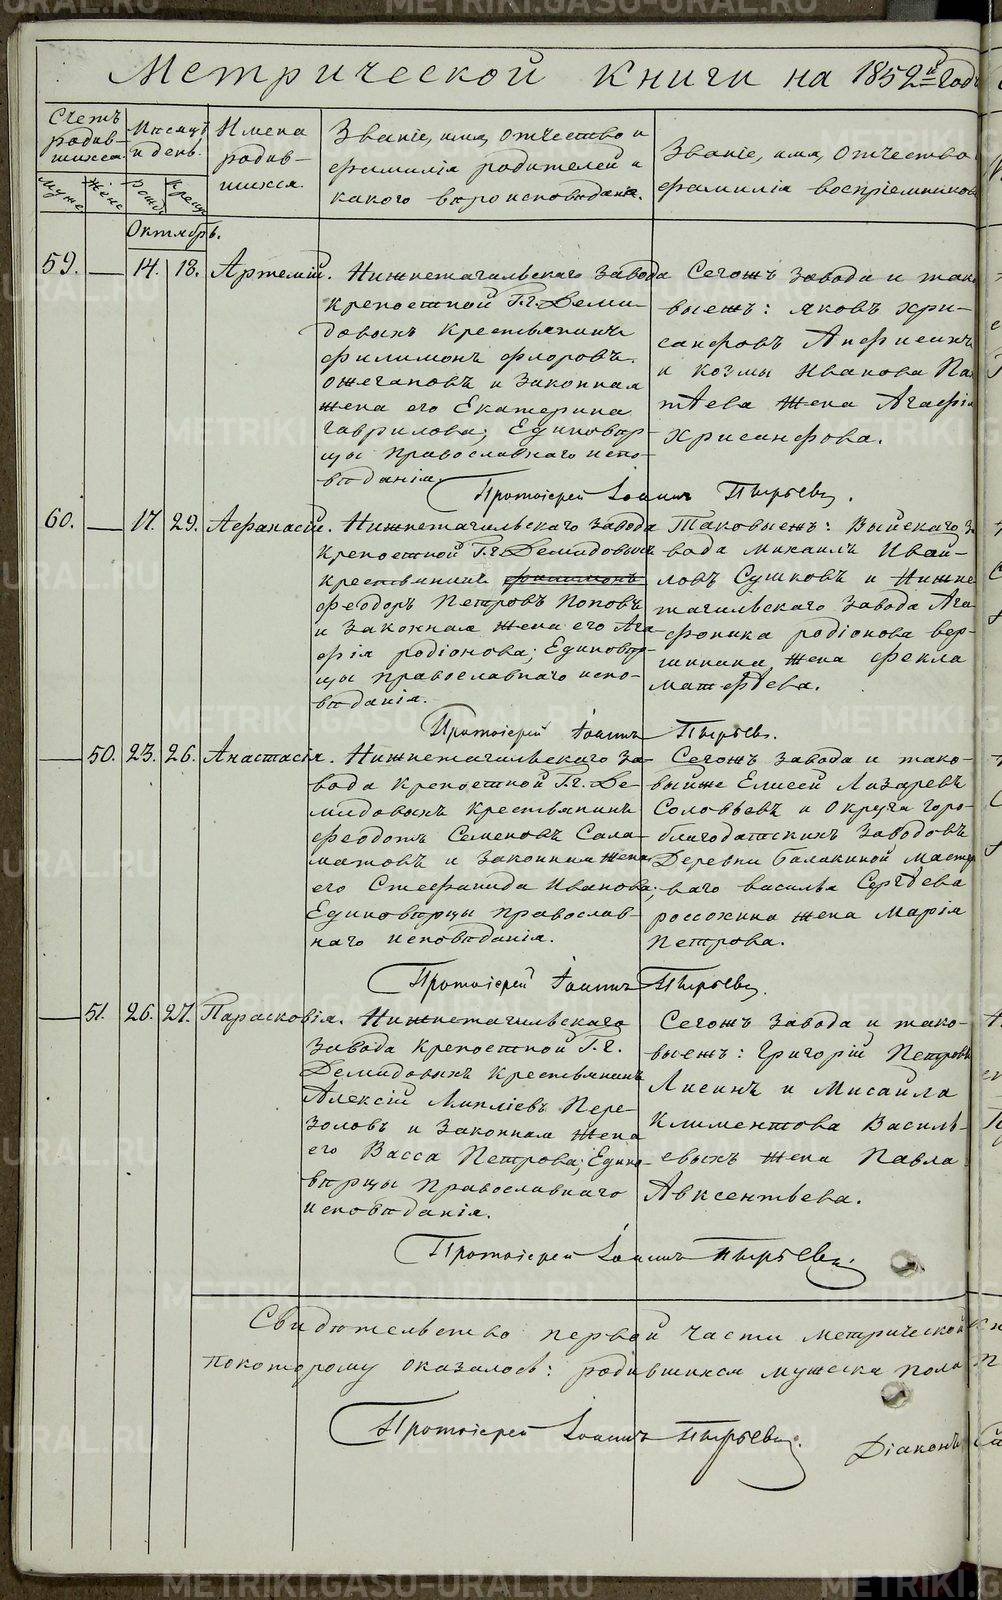 Метрической Книги на 1852й Годъ
Счетъ родив-шихся
Месяцъ и день.
Имена родив-шихся.
Званіе, имя, отчество и фамилія родителей и какого вѣроисповѣданія.
Званіе, имя, отчество фамилія воспріемниковъ
Муже
Жене
Рожд
Крещ
Октябрь.
59. — 14. 18. Артемій.
Нижнетагильскаго завода
крепостной Г.г. Деми-
довыхъ крестьянинъ
Филимонъ Флоровъ
Ожегановъ и законная
жена его Екатерина
Гаврилова; Едиповѣр-
цы православнаго испо-
вѣданія.
Сегожъ завода и тако
выежъ: Яковъ Хри-
санфовъ Анфисинъ
и Козмы Иванова Па
тѣева жена Агафія
Хрисанфова.
Протоіерей Іоаннъ Пырьевъ.
60. — 17. 29. Афанасій.
Нижнетагильскаго завода
крепостной Г.г. Демидовыхъ
крестьянинъ Филимонъ
Феодоръ Петровъ Поповъ
и законная жена его Ага
фія Родіонова; Едиповѣр-
цы православнаго испо-
вѣданія.
Таковыежъ: Выйскаго за
вода Михаилъ Ивай-
ловъ Сушковъ и Нижне
тагильскаго завода Ага
фоника Родіонова Вер-
шинина жена Фекла
Матфѣева.
Протоіерей Іоаннъ Пырьевъ.
— 50. 23. 26. Анастасія.
Нижнетагильскаго за-
вода крепостной Г.г. Де-
мидовыхъ крестьянинъ
Феодотъ Семеновъ Сала-
матовъ и законная жена
его Стефанида Иванова;
Единовѣрцы православ-
наго исповѣданія.
Сегожъ завода и тако-
выйже Елисей Лазаревъ
Соловьевъ и Округа Горо-
благодатскихъ заводовъ
Деревни Балакиной мастер
ваго Василья Сергѣева
Россохина жена Марія
Петрова.
Протоіерей Іоаннъ Пырьевъ.
— 51. 26. 27. Парасковія.
Нижнетагильскаго
завода крепостной Г.г.
Демидовыхъ крестьянинъ
Алексій Пере-
золовъ и законная жена
его Васса Петрова; Едино-
вѣрцы православнаго
исповѣданія.
Сегожъ завода и тако-
выежъ: Григорій Петровъ
Лисинъ и Мисаила
Климентова Василь-
евыхъ жена Павла
Авксентьева.
Протоіерей Іоаннъ Пырьевъ.
Свидѣтельство первой части метрической
покоторому оказалось: родившихся мужеска пола
Протоіерей Іоаннъ Пырьевъ.
Діаконъ
METRIKI.GASO-URAL.RU